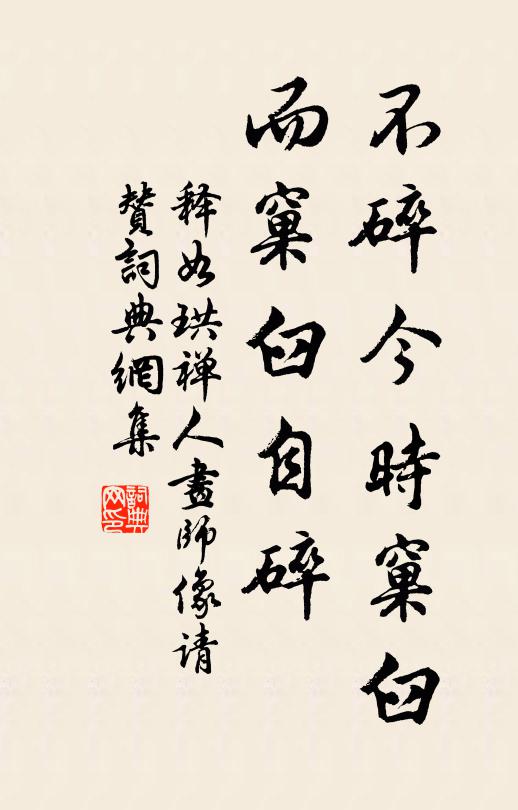 不碎今時窠臼
而窠臼自碎
释如珙禅人畫師像请
贊詞典網集
詞典网印